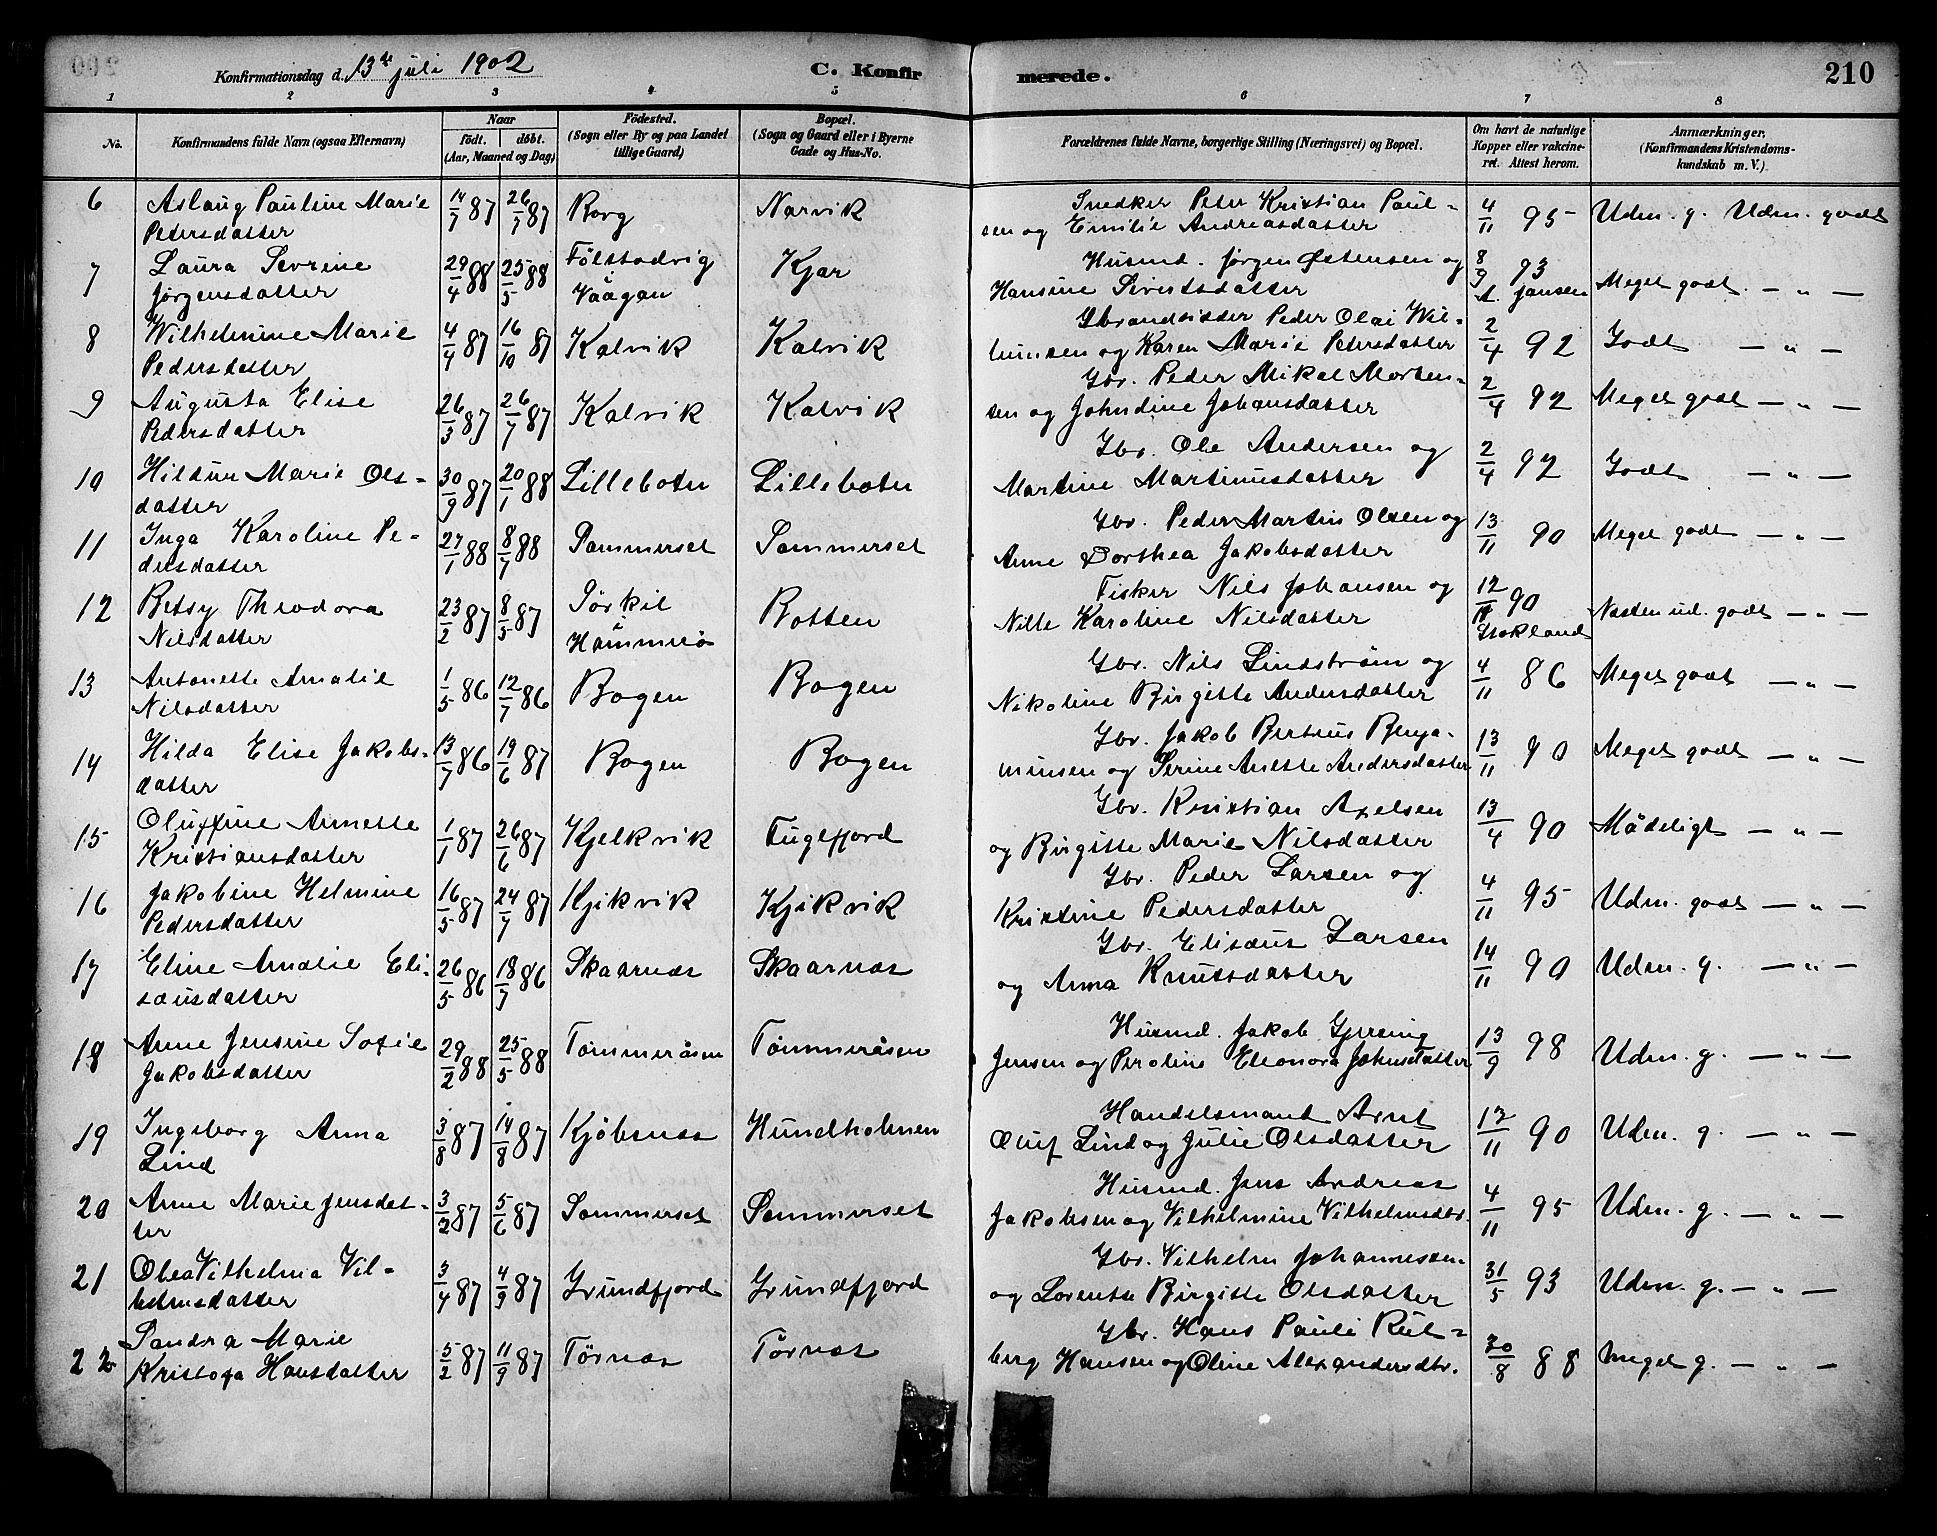 Konfirmationsdag d. 13de juli 1902 C. Konfirmerede. 210
1 2 3 4 5 6 7 8
No. Konfirmandens fulde Navn (ogsaa Efternavn) Naar født. døbt. (Aar, Maaned og Dag) Fødested. (Sogn eller By og paa Landet tillige Gaard) Bopæl. (Sogn og Gaard eller i Byerne Gade og Hus-No. Forældrenes fulde Navne, borgerlige Stilling (Næringsvei) og Bopæl. Om havt de naturlige Kopper eller vakcineret. Attest herom. Anmærkninger, (Konfirmandens Kristendomskundskab m. V.)
6 Aslaug Pauline Marie 14/7 87 26/7 87 Borg Narvik Snedker Peter Kristian Paul- 4/11 95 Udm. g. Udm. godt
Petersdatter sen og Emilie Andreasdatter
7 Laura Sevrine 29/4 88 25/5 88 Følstadvig Kjær Husmd. Jørgen Østensen og 8/9 93
Jørgensdatter i Vaagan Hansine Sivertsdatter A. Jansen Meget godt — " —
8 Wilhelmine Marie 4/4 87 16/10 87 Kalvik Kalvik Gbrandsidder Peder Olai Wil- 2/4 92 Godt — " —
Pedersdatter lumsen og Karen Marie Petersdatter
9 Augusta Elise 26/3 87 26/7 87 Kalvik Kalvik Gbr. Peder Mikal Morten- 2/4 92 Meget godt — " —
Pedersdatter sen og Johndine Johansdatter
10 Hildur Marie Ols- 30/9 87 20/1 88 Lillebotn Lillebotn Gbr. Ole Andersen og 2/4 92 Godt — " —
datter Martine Martinusdatter
11 Inga Karoline Pe- 27/1 88 8/7 88 Sommerset Sommerset Gbr. Peder Martin Olsen og 13/11 90 Meget godt — " —
dersdatter Anne Dorthea Jakobsdatter
12 Betsy Theodora 23/2 87 8/5 87 Sørkil Botten Fisker Nils Johansen og 12/11 90
Nilsdatter i Hammerø Nille Karoline Nilsdatter Stokland Næsten ud. godt — " —
13 Antonette Amalie 1/5 86 12/7 86 Bogen Bogen Gbr. Nils Lindstrøm og 4/11 86 Meget godt — " —
Nilsdatter Nikoline Birgitte Andersdatter
14 Hilda Elise Jakobs- 13/7 86 19/6 87 Bogen Bogen Gbr. Jakob Berteus Benja- 13/11 90 Meget godt — " —
datter minsen og Serine Anette Andersdatter
15 Oluffine Annette 1/1 87 26/6 87 Kjelkvik Fuglefjord Gbr. Kristian Axelsen 13/4 90 Mådeligt — " —
Kristiansdatter og Birgitte Marie Nilsdatter
16 Jakobine Helmine 16/5 87 24/7 87 Kjikvik Kjikvik Gbr. Peder Larsen og 4/11 95 Udm. godt — " —
Pedersdatter Kristine Pedersdatter
17 Eline Amalie Eli- 26/5 86 18/7 86 Skaarnæs Skaarnæs Gbr. Elisæus Larsen 14/11 90 Udm. g. — " —
sæusdatter og Anna Knutsdatter
18 Anne Jensine Sofie 29/2 88 25/5 88 Tømmeråsen Tømmeråsen Husmd. Jakob 13/9 98 Udm. g. — " —
Jakobsdatter Jensen og Peroline Eleonora Johnsdatter
19 Ingeborg Anna 3/8 87 14/8 87 Kjøbsnæs Hundholmen Handelsmand Arnt 17/11 90 Udm. g. — " —
Lind Oluf Lind og Julie Olsdatter
20 Anne Marie Jensdat- 3/2 87 5/6 87 Sommerset Sommerset Husmd. Jens Andreas 4/11 95 Udm. g. — " —
ter Jakobsen og Vilhelmine Vilhelmsdtr.
21 Olea Vilhelma Vil- 3/4 87 4/9 87 Grundfjord Grundfjord Gbr. Vilhelm Johannessen 31/5 93 Udm. g. — " —
helmsdatter og Lorentse Birgitte Olsdatter
22 Sandra Marie 5/2 87 11/9 87 Tørnæs Tørnæs Gbr. Hans Pauli Rut- 30/8 88 Meget g. — " —
Kristofa Hansdatter berg Hansen og Oline Alexandersdtr.